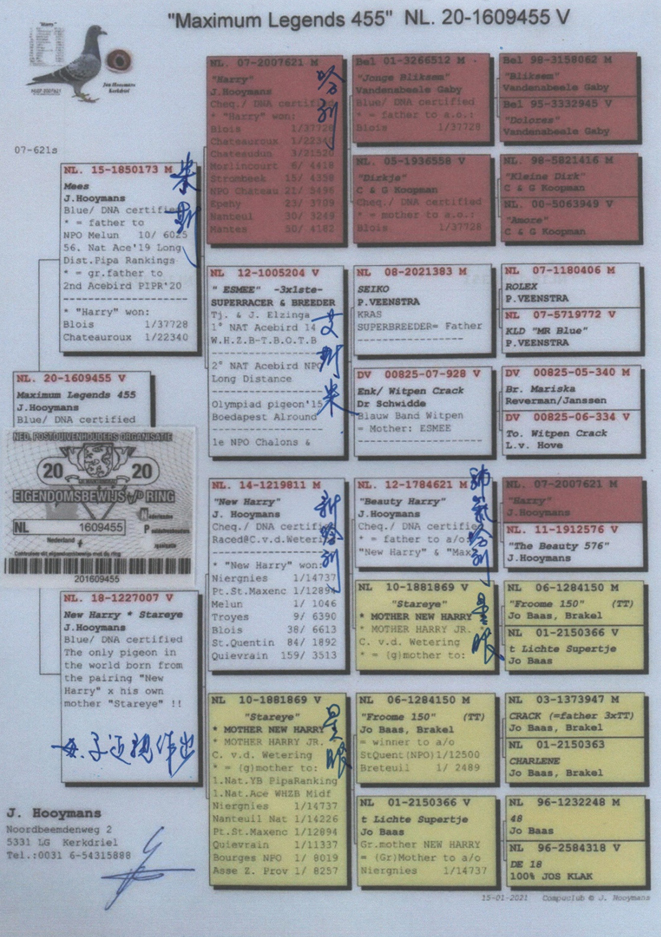 "Maximum Legends 455" NL. 20-1609455 V
"Harry"
Jos Hooymans
Kerkdriel
07-621s
NL. 20-1609455 V
Maximum Legends 455
J.Hooymans
Blue/ DNA certified
NED. POSTDUIVENHOUDERS ORGANISATIE
20 20
EIGENDOMSBEWIJS v/D RING
NL 1609455
Nederland
201609455
NL. 15-1850173 M
Mees
J.Hooymans
Blue/ DNA certified
* = father to
NPO Melun 10/ 6025
56. Nat Ace'19 Long
Dist.Pipa Rankings
* = gr.father to
2nd Acebird PIPR'20
* "Harry" won:
Blois 1/37728
Chateauroux 1/22340
米斯
NL. 18-1227007 V
New Harry * Stareye
J.Hooymans
Blue/ DNA certified
The only pigeon in
the world born from
the pairing "New
Harry" x his own
mother "Stareye" !!
母子近親作出
NL. 07-2007621 M
"Harry"
J.Hooymans
Cheq./ DNA certified
* "Harry" won:
Blois 1/37728
Chateauroux 1/22340
Chateaudun 3/21520
Morlincourt 6/ 4418
Strombeek 15/ 4359
NPO Chateau 21/ 5496
Epehy 23/ 3709
Nanteul 30/ 3249
Mantes 50/ 4162
哈利
NL. 12-1005204 V
" ESMEE" -3x1ste-
SUPERRACER & BREEDER
Tj. & J. Elzinga
1° NAT Acebird 14
W.H.Z.B-T.B.O.T.B
2° NAT Acebird NPO
Long Distance
Olympiad pigeon'15
Boedapest Alround
1e NPO Chalons &
艾斯米
NL. 14-1219811 M
"New Harry"
J. Hooymans
Cheq./ DNA certified
Raced@C.v.d.Wetering
* "New Harry" won:
Niergnies 1/14737
Pt.St.Maxenc 1/12894
Melun 1/ 1046
Troyes 9/ 6390
Blois 38/ 6613
St.Quentin 84/ 1892
Quievrain 159/ 3513
新哈利
NL 10-1881869 V
"Stareye"
* MOTHER NEW HARRY
* MOTHER HARRY JR.
C. v.d. Wetering
* = (g)mother to:
1.Nat.YB PipaRanking
1.Nat.Ace WHZB Midf
Niergnies 1/14737
Nanteuil Nat 1/14226
Pt.St.Maxenc 1/12894
Quievrain 1/11337
Bourges NPO 1/ 8019
Asse Z. Prov 1/ 8257
星眼
Bel 01-3266512 M
"Jonge Bliksem"
Vandenabeele Gaby
Blue/ DNA certified
* = father to a.o.:
Blois 1/37728
NL. 05-1936558 V
"Dirkje"
C & G Koopman
Cheq./ DNA certified
* = mother to a.o.:
Blois 1/37728
NL 08-2021383 M
SEIKO
P.VEENSTRA
KRAS
SUPERBREEDER= Father
DV 00825-07-928 V
Enk/ Witpen Crack
Dr Schwidde
Blauw Band Witpen
= Mother: ESMEE
NL. 12-1784621 M
"Beauty Harry"
J. Hooymans
Cheq./ DNA certified
* = father to a/o
"New Harry" & "Max
哈利
NL 10-1881869 V
"Stareye"
* MOTHER NEW HARRY
* MOTHER HARRY JR.
C. v.d. Wetering
* = (g)mother to:
星眼
NL 06-1284150 M
"Froome 150" (TT)
Jo Baas, Brakel
= winner to a/o
StQuent(NPO)1/12500
Breteuil 1/ 2489
NL 01-2150366 V
t Lichte Supertje
Jo Baas
Gr.mother NEW HARRY
= (Gr)Mother to a/o
Niergnies 1/14737
Bel 98-3158062 M
"Bliksem"
Vandenabeele Gaby
Bel 95-3332945 V
"Dolores"
Vandenabeele Gaby
NL. 98-5821416 M
"Kleine Dirk"
C & G Koopman
NL. 00-5063949 V
"Amore"
C & G Koopman
NL 07-1180406 M
ROLEX
P.VEENSTRA
NL 07-5719772 V
KLD "MR Blue"
P.VEENSTRA
DV 00825-05-340 M
Br. Mariska
Reverman/Janssen
DV 00825-06-334 V
To. Witpen Crack
L.v. Hove
NL. 07-2007621 M
"Harry"
J.Hooymans
NL. 11-1912576 V
"The Beauty 576"
J.Hooymans
NL 06-1284150 M
"Froome 150" (TT)
Jo Baas, Brakel
NL 01-2150366 V
t Lichte Supertje
Jo Baas
NL 03-1373947 M
CRACK (=father 3xTT)
Jo Baas, Brakel
NL 01-2150363 V
CHARLENE
Jo Baas, Brakel
NL 96-1232248 M
48
Jo Baas
NL 96-2584318 V
DE 18
100% JOS KLAK
J. Hooymans
Noordbeemdenweg 2
5331 LG Kerkdriel
Tel.:0031 6-54315888
15-01-2021 Compuclub © J. Hooymans